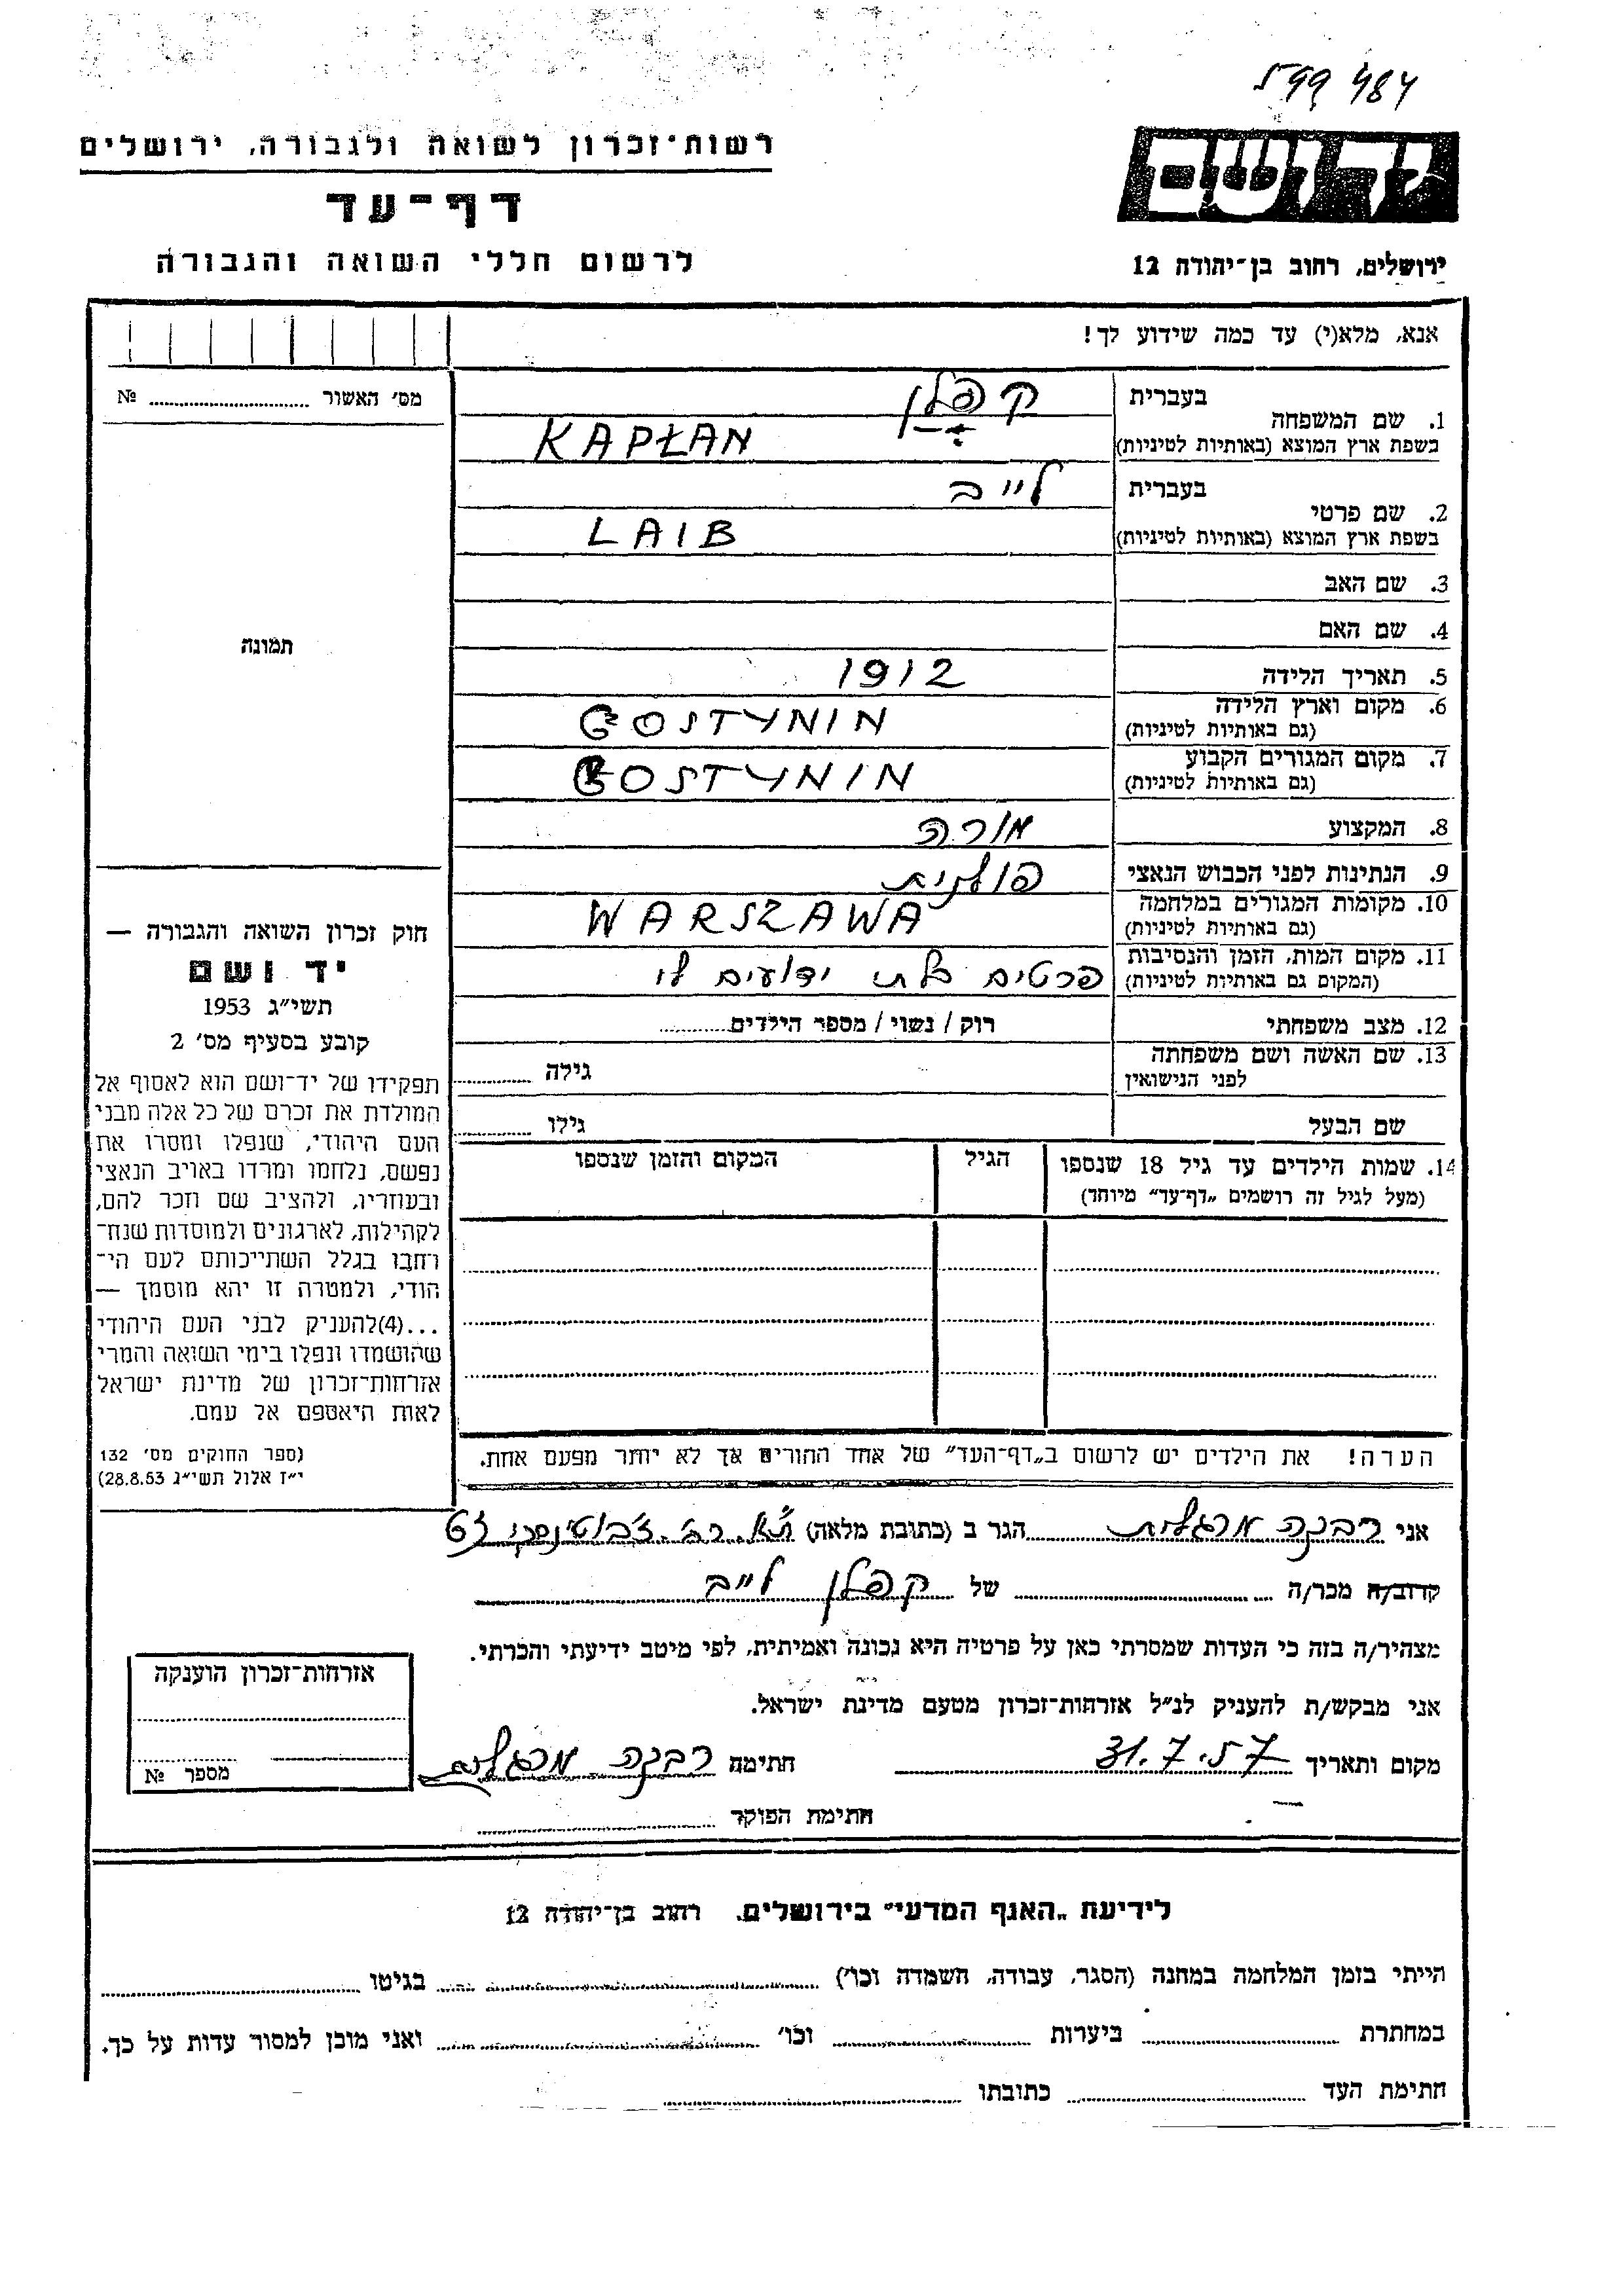 599 484
רשות־זכרון לשואה ולגבורה, ירושלים
יד ושם
דף־עד
לרשום חללי השואה והגבורה
ירושלים, רחוב בן־יהודה 12
אנא, מלא(י) עד כמה שידוע לך!
מס׳ האשור №
1. שם המשפחה
בעברית קפלן
בשפת ארץ המוצא (באותיות לטיניות) KAPŁAN
2. שם פרטי
בעברית לייב
בשפת ארץ המוצא (באותיות לטיניות) LAIB
3. שם האב
4. שם האם
תמונה
5. תאריך הלידה 1912
6. מקום וארץ הלידה
(גם באותיות לטיניות) GOSTYNIN
7. מקום המגורים הקבוע
(גם באותיות לטיניות) GOSTYNIN
8. המקצוע מורה
9. הנתינות לפני הכבוש הנאצי פולנית
10. מקומות המגורים במלחמה
(גם באותיות לטיניות) WARSZAWA
11. מקום המות, הזמן והנסיבות
(המקום גם באותיות לטיניות) פרטים בלתי ידועים לי
12. מצב משפחתי רוק / נשוי / מספר הילדים
13. שם האשה ושם משפחתה
לפני הנישואין גילה
שם הבעל גילו
14. שמות הילדים עד גיל 18 שנספו הגיל המקום והזמן שנספו
(מעל לגיל זה רושמים „דף־עד״ מיוחד)
הערה! את הילדים יש לרשום ב„דף־העד״ של אחד ההורים אך לא יותר מפעם אחת.
חוק זכרון השואה והגבורה —
יד ושם
תשי״ג 1953
קובע בסעיף מס׳ 2
תפקידו של יד־ושם הוא לאסוף אל
המולדת את זכרם של כל אלה מבני
העם היהודי, שנפלו ומסרו את
נפשם, נלחמו ומרדו באויב הנאצי
ובעוזריו, ולהציב שם וזכר להם,
לקהילות, לארגונים ולמוסדות שנח־
רחבו בגלל השתייכותם לעם הי־
הודי, ולמטרה זו יהא מוסמך —
...(4)להעניק לבני העם היהודי
שהושמדו ונפלו בימי השואה והמרי
אזרחות־זכרון של מדינת ישראל
לאות היאספם אל עמם.
(ספר החוקים מס׳ 132
י״ז אלול תשי״ג 28.8.53)
אני רבקה מרגלית הגר ב (כתובת מלאה) ת״א רח׳ ז׳בוטינסקי
קרוב/ה מכר/ה של קפלן לייב
מצהיר/ה בזה כי העדות שמסרתי כאן על פרטיה היא נכונה ואמיתית, לפי מיטב ידיעתי והכרתי.
אני מבקש/ת להעניק לנ״ל אזרחות־זכרון מטעם מדינת ישראל.
מקום ותאריך 31.7.57 חתימה רבקה מרגלית
חתימת הפוקד
אזרחות־זכרון הוענקה
מספר №
לידיעת „האגף המדעי״ בירושלים, רחוב בן־יהודה 12
הייתי בזמן המלחמה במחנה (הסגר, עבודה, השמדה וכו׳) בגיטו
במחתרת ביערות וכו׳ ואני מוכן למסור עדות על כך.
חתימת העד כתובתו